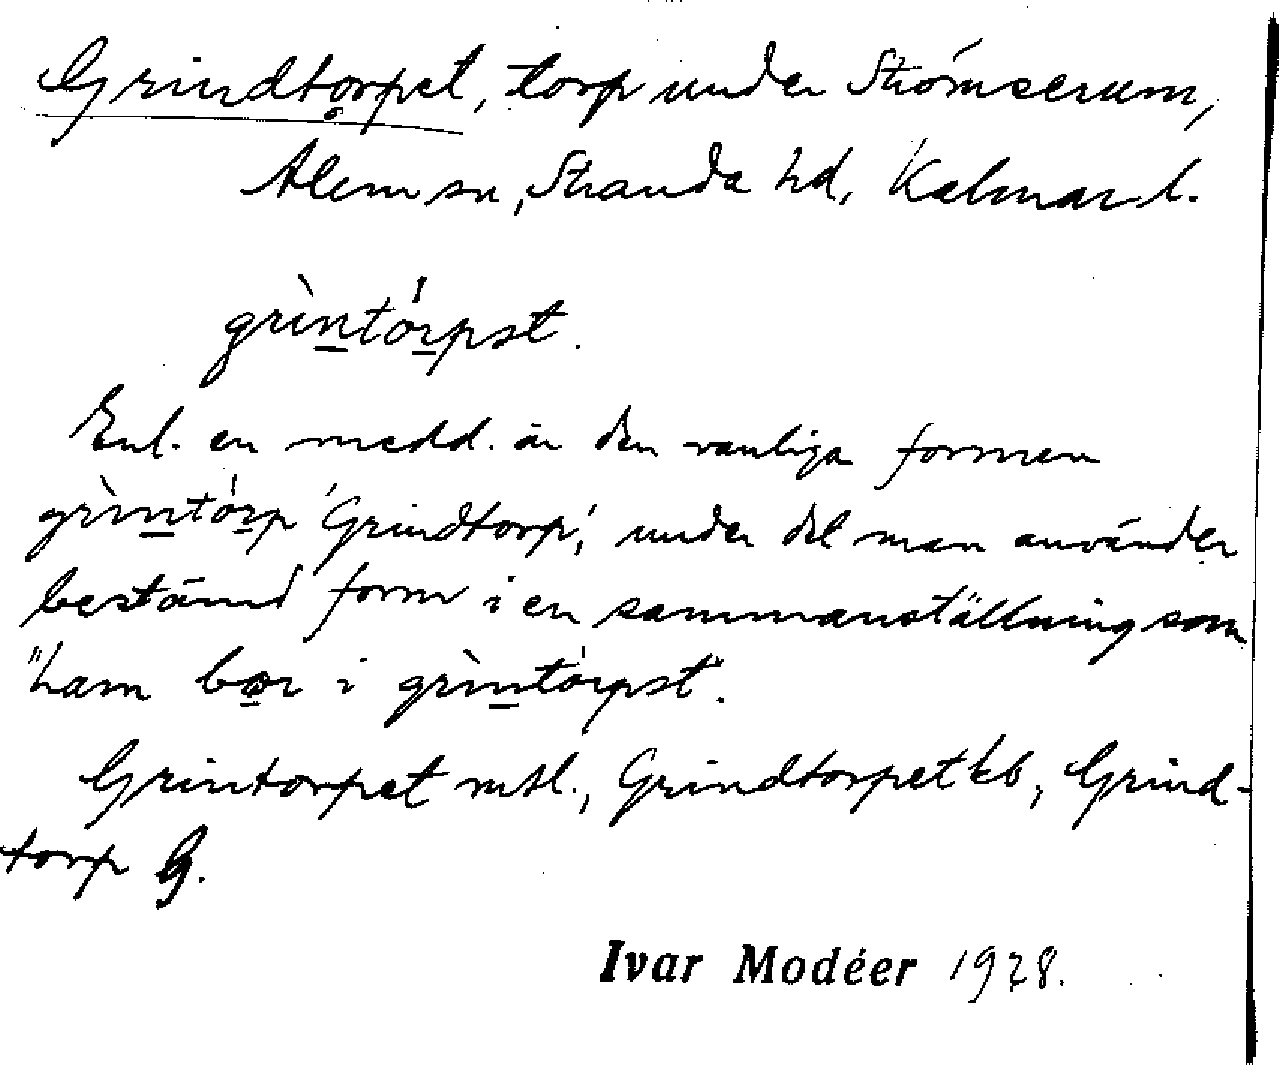 Grindtorpet, torp under Strömserum,
Ålem sn, Stranda hd, Kalmar l.
grìntórpət.
Enl. en medd. är den vanliga formen
grìntórp 'Grindtorp', under det man använder
bestämd form i en sammanställning som
"ham bor i grìntórpət".
Grintorpet mtl., Grindtorpet kb, Grind-
torp G.
Ivar Modéer 1928.